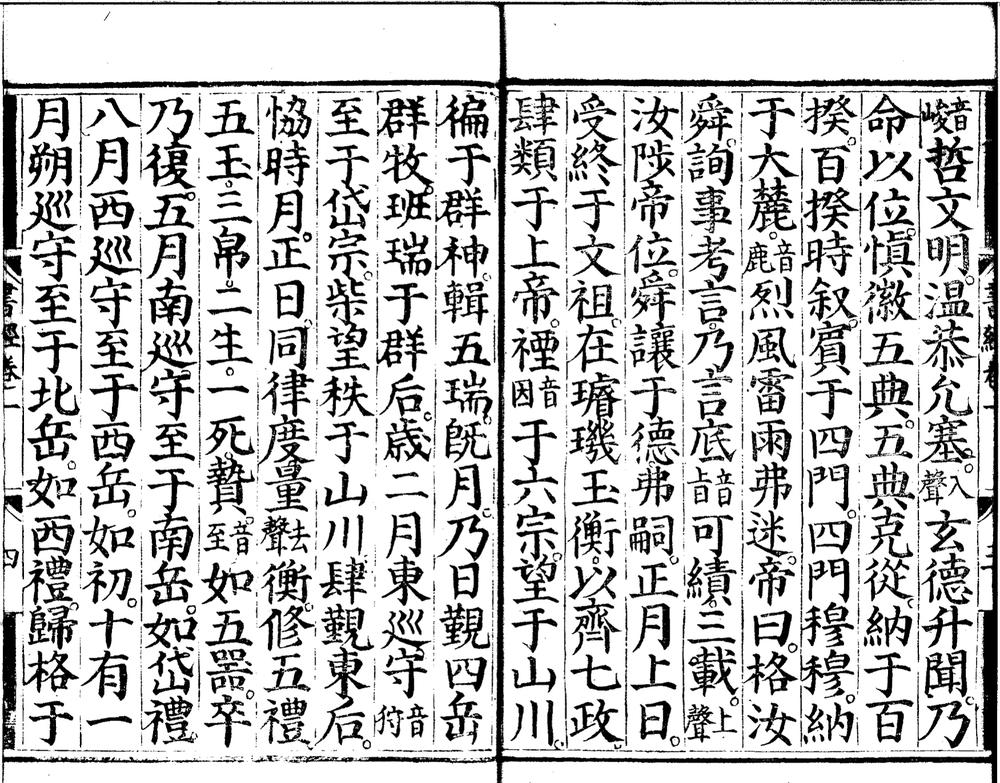 音峻哲文明。温恭允塞。入聲玄德升聞。乃
命以位。慎徽五典。五典克從。納于百
揆。百揆時叙。賓于四門。四門穆穆。納
于大麓。音鹿烈風雷雨弗迷。帝曰。格汝
舜。詢事考言。乃言底音旨可績。三載。上聲
汝陟帝位。舜讓于德弗嗣。正月上日。
受終于文祖。在璿璣玉衡。以齊七政。
肆類于上帝。禋音因于六宗。望于山川。
徧于群神。輯五瑞。旣月。乃日覲四岳
群牧。班瑞于群后。歲二月東巡守音狩
至于岱宗。柴望秩于山川肆覲東后。
恊時月。正日。同律度量去聲衡。修五禮
五玉。三帛。二生。一死。贄。音至如五器。卒
乃復。五月南巡守至于南岳。如岱禮。
八月西巡守至于西岳。如初。十有一
月朔巡守至于北岳。如西禮。歸格于
書經卷一 四